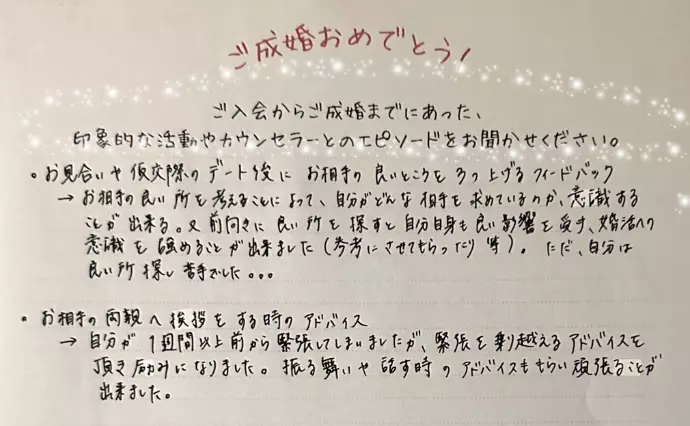 ご成婚おめでとう!
ご入会からご成婚までにあった、
印象的な活動やカウンセラーとのエピソードをお聞かせください。
。お見合いや仮交際のデート後に お相手の良いところを3つ上げるフィードバック
→ お相手の良い所を考えることによって、自分がどんな相手を求めているのか、意識する
ことが出来る。又前向きに良い所を探すと自分自身も良い影響を受け、婚活への
意識を強めることが出来ました(参考にさせてもらったり等)。ただ、自分は
良い所探し苦手でした。。。
。お相手の両親へ挨拶をする時のアドバイス
→ 自分が1週間以上前から緊張してしまいましたが、緊張を乗り越えるアドバイスを
頂き励みになりました。振る舞いや話す時のアドバイスももらい頑張ることが
出来ました。